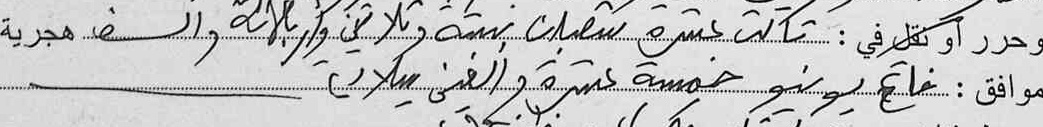 وحرر أو نقل في : ثالث عشرة شعبان ستة وثلاثين وأربعمائة وألف هجرية
موافق : فاتح يونيو خمسة عشرة وألفين ميلادية